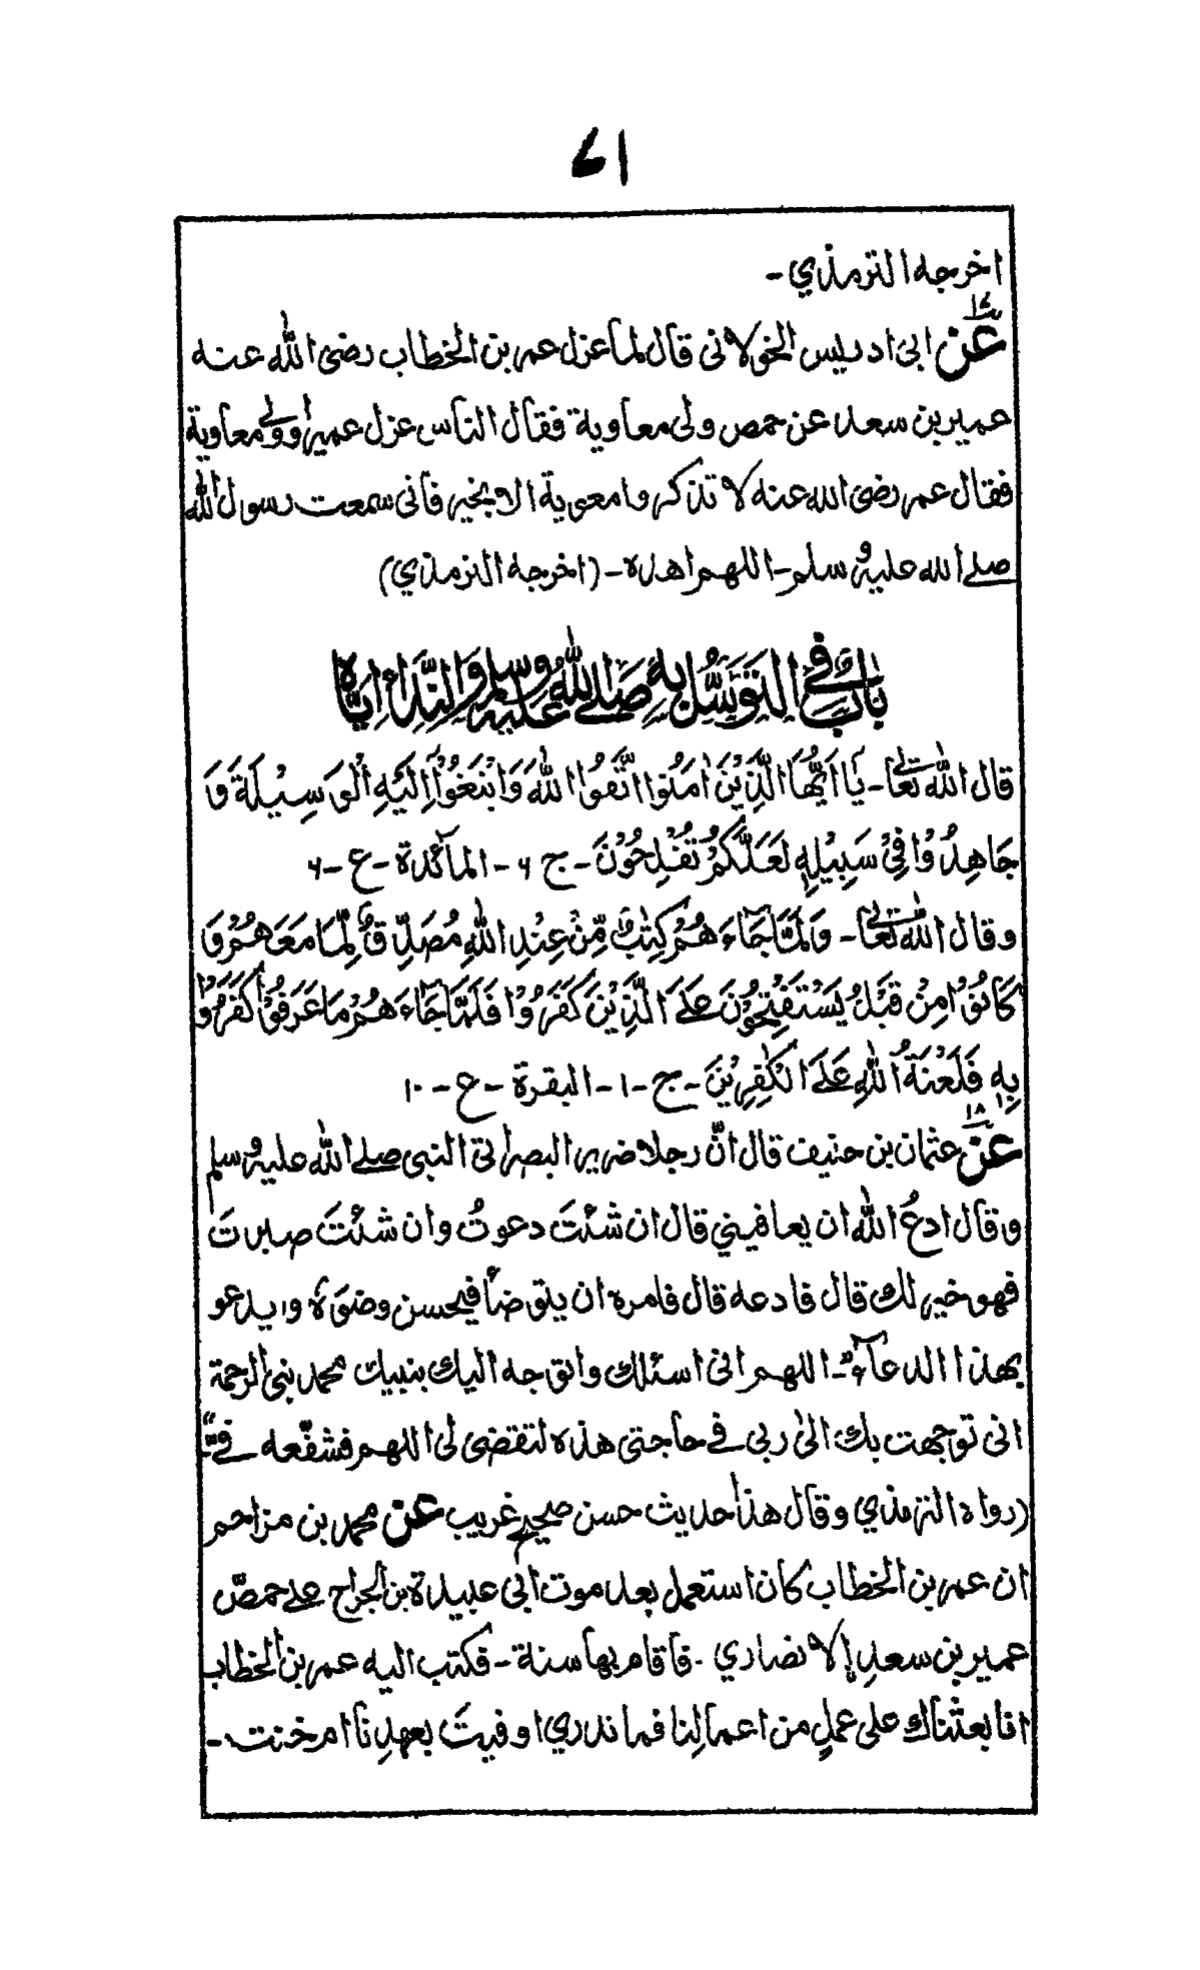 ١٧
اخرجه الترمذي ـ
١٧
عن ابى ادريس الخولانى قال لما عزل عمر بن الخطاب رضى الله عنه
عمير بن سعد عن حمص ولى معاوية فقال الناس عزل عميرا وولى معاوية
فقال عمر رضى الله عنه لا تذكروا معوية الا بخير فانى سمعت رسول الله
صلى الله عليه وسلم ـ اللهم اهده ـ (اخرجه الترمذي)
بَابٌ فِي التَّوَسُّلِ بِهِ صَلَّى اللهُ عَلَيْهِ وَسَلَّمَ وَالنِّدَاءِ اِيَّاهُ
قال الله تعالى ـ يَا اَيُّهَا الَّذِيْنَ اٰمَنُوا اتَّقُوا اللهَ وَابْتَغُوْا اِلَيْهِ الْوَسِيْلَةَ وَ
جَاهِدُوْا فِيْ سَبِيْلِهٖ لَعَلَّكُمْ تُفْلِحُوْنَ ـ ج ٦ ـ المآئدة ـ ع ـ ٦
وقال الله تعالى ـ وَلَمَّا جَآءَ هُمْ كِتٰبٌ مِّنْ عِنْدِ اللهِ مُصَدِّقٌ لِّمَا مَعَهُمْ وَ
كَانُوْا مِنْ قَبْلُ يَسْتَفْتِحُوْنَ عَلَى الَّذِيْنَ كَفَرُوْا فَلَمَّا جَآءَ هُمْ مَا عَرَفُوْا كَفَرُوْا
بِهٖ فَلَعْنَةُ اللهِ عَلَى الْكٰفِرِيْنَ ـ ج ـ ١ ـ البقرة ـ ع ـ ١٠
١٨
عن عثمان بن حنيف قال انّ رجلا ضرير البصر اتى النبى صلى الله عليه وسلم
وقال ادعُ الله ان يعافيني قال ان شئتَ دعوتُ وان شئتَ صبرتَ
فهو خير لك قال فادعه قال فامره ان يتوضأ فيحسن وضوءه ويدعو
بهذا الدعآء ـ اللهم انى اسئلك واتوجه اليك بنبيك محمد نبى الرحمة
انى توجهت بك الى ربى فى حاجتى هذه لتقضى لى اللهم فشفّعه فىّ
(رواه الترمذي وقال هذا حديث حسن صحيح غريب عن محمد بن مزاحم
ان عمر بن الخطاب كان استعمل بعد موت ابى عبيدة بن الجراح على حمص
عمير بن سعدٍ الانصاري ـ فاقام بها سنة ـ فكتب اليه عمر بن الخطاب
انا بعثناك على عملٍ من اعمالِنا فما ندري اوفيتَ بعهدِنا ام خنت ـ